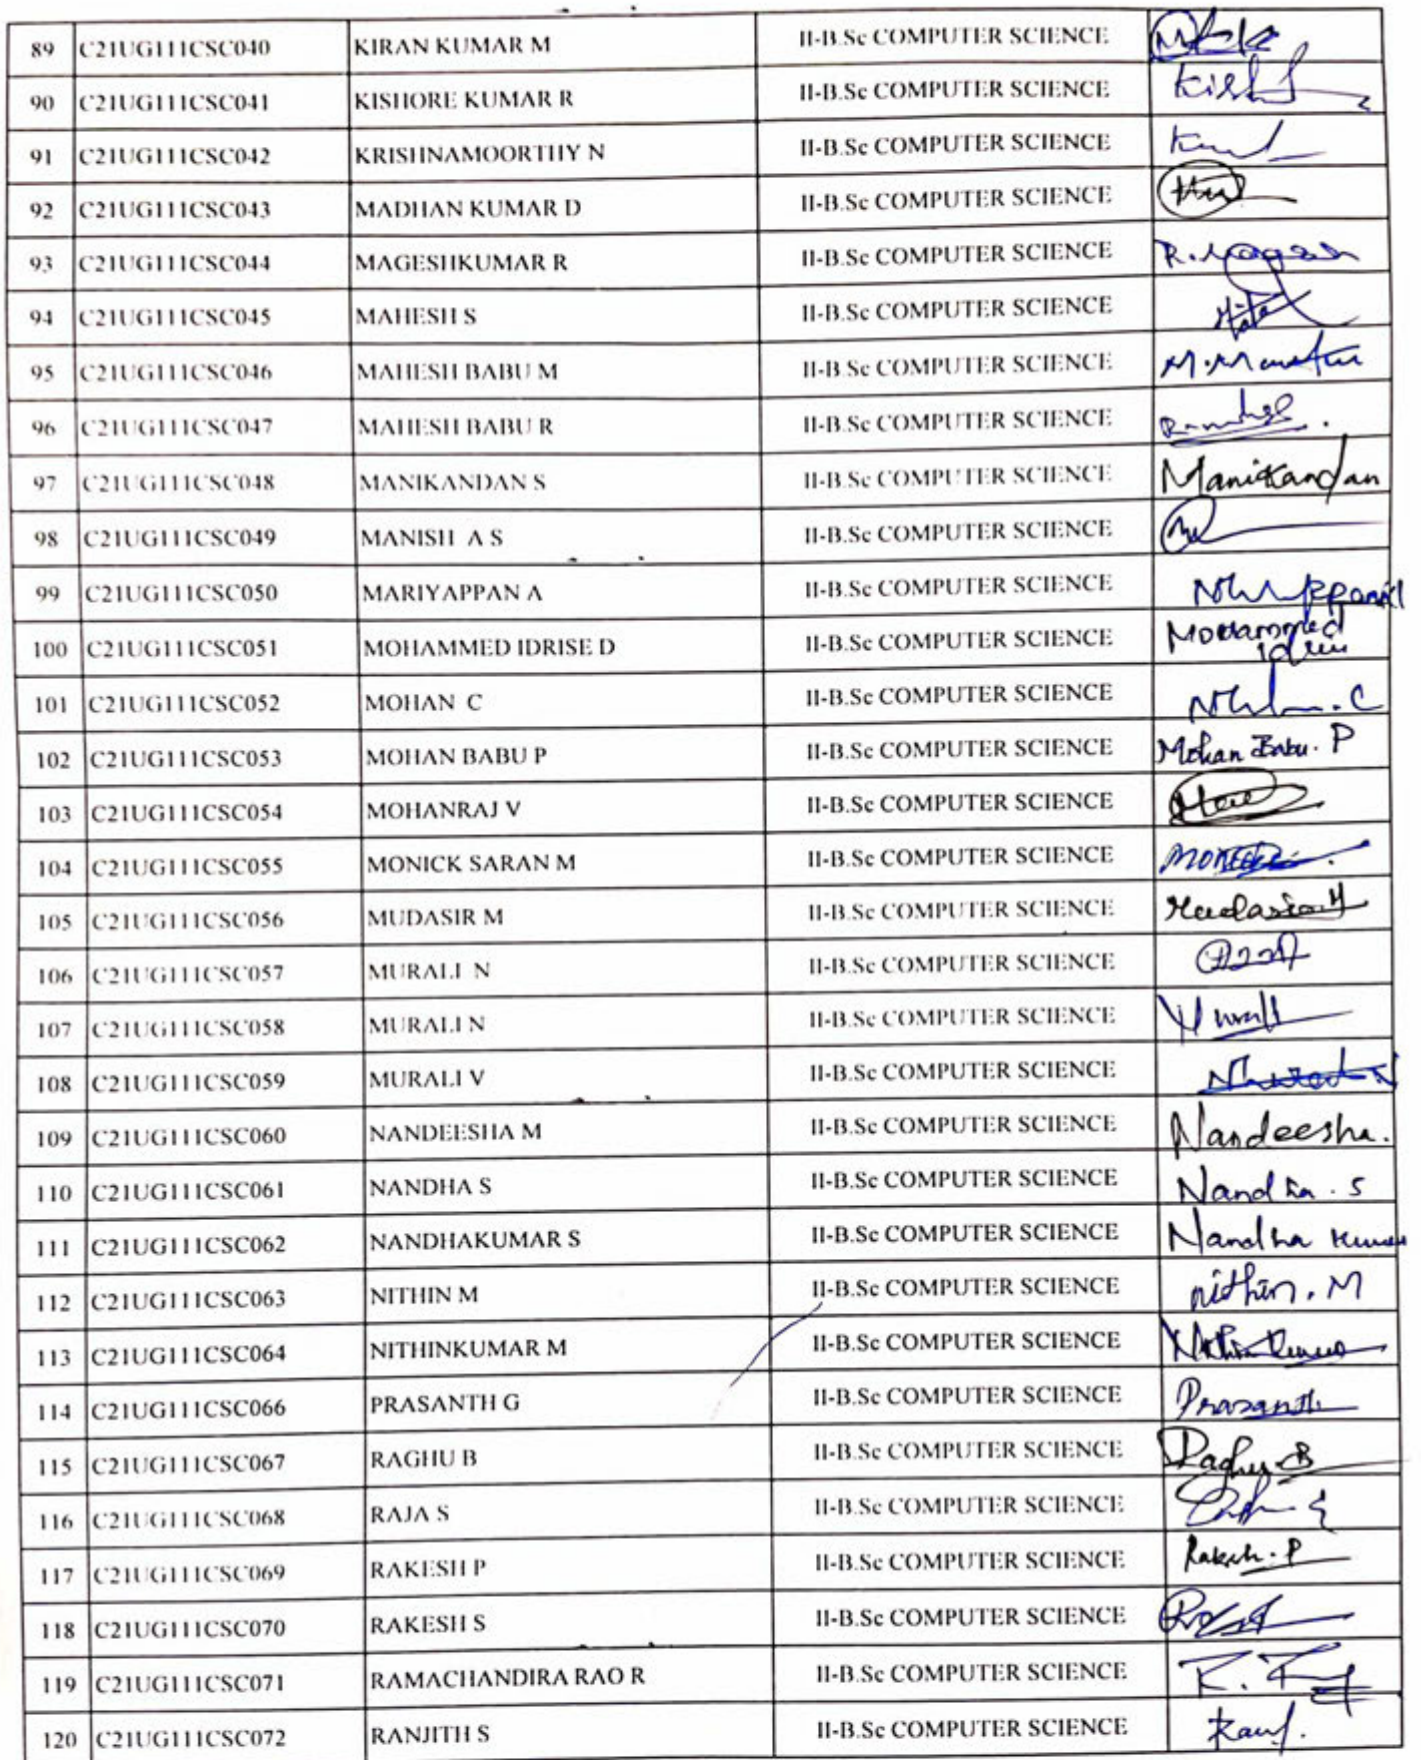 89 C21UG111CSC040 KIRAN KUMAR M II-B.Sc COMPUTER SCIENCE
90 C21UG111CSC041 KISHORE KUMAR R II-B.Sc COMPUTER SCIENCE
91 C21UG111CSC042 KRISHNAMOORTHY N II-B.Sc COMPUTER SCIENCE
92 C21UG111CSC043 MADHAN KUMAR D II-B.Sc COMPUTER SCIENCE
93 C21UG111CSC044 MAGESHKUMAR R II-B.Sc COMPUTER SCIENCE
94 C21UG111CSC045 MAHESH S II-B.Sc COMPUTER SCIENCE
95 C21UG111CSC046 MAHESH BABU M II-B.Sc COMPUTER SCIENCE
96 C21UG111CSC047 MAHESH BABU R II-B.Sc COMPUTER SCIENCE
97 C21UG111CSC048 MANIKANDAN S II-B.Sc COMPUTER SCIENCE Manikandan
98 C21UG111CSC049 MANISH A S II-B.Sc COMPUTER SCIENCE
99 C21UG111CSC050 MARIYAPPAN A II-B.Sc COMPUTER SCIENCE
100 C21UG111CSC051 MOHAMMED IDRISE D II-B.Sc COMPUTER SCIENCE Mohammed
101 C21UG111CSC052 MOHAN C II-B.Sc COMPUTER SCIENCE
102 C21UG111CSC053 MOHAN BABU P II-B.Sc COMPUTER SCIENCE Mohan Babu. P
103 C21UG111CSC054 MOHANRAJ V II-B.Sc COMPUTER SCIENCE
104 C21UG111CSC055 MONICK SARAN M II-B.Sc COMPUTER SCIENCE
105 C21UG111CSC056 MUDASIR M II-B.Sc COMPUTER SCIENCE
106 C21UG111CSC057 MURALI N II-B.Sc COMPUTER SCIENCE
107 C21UG111CSC058 MURALI N II-B.Sc COMPUTER SCIENCE
108 C21UG111CSC059 MURALI V II-B.Sc COMPUTER SCIENCE
109 C21UG111CSC060 NANDEESHA M II-B.Sc COMPUTER SCIENCE Nandeesha.
110 C21UG111CSC061 NANDHA S II-B.Sc COMPUTER SCIENCE Nandha . S
111 C21UG111CSC062 NANDHAKUMAR S II-B.Sc COMPUTER SCIENCE Nandha
112 C21UG111CSC063 NITHIN M II-B.Sc COMPUTER SCIENCE nithin. M
113 C21UG111CSC064 NITHINKUMAR M II-B.Sc COMPUTER SCIENCE
114 C21UG111CSC066 PRASANTH G II-B.Sc COMPUTER SCIENCE Prasanth
115 C21UG111CSC067 RAGHU B II-B.Sc COMPUTER SCIENCE Raghu B
116 C21UG111CSC068 RAJA S II-B.Sc COMPUTER SCIENCE
117 C21UG111CSC069 RAKESH P II-B.Sc COMPUTER SCIENCE Rakesh. P
118 C21UG111CSC070 RAKESH S II-B.Sc COMPUTER SCIENCE
119 C21UG111CSC071 RAMACHANDIRA RAO R II-B.Sc COMPUTER SCIENCE
120 C21UG111CSC072 RANJITH S II-B.Sc COMPUTER SCIENCE